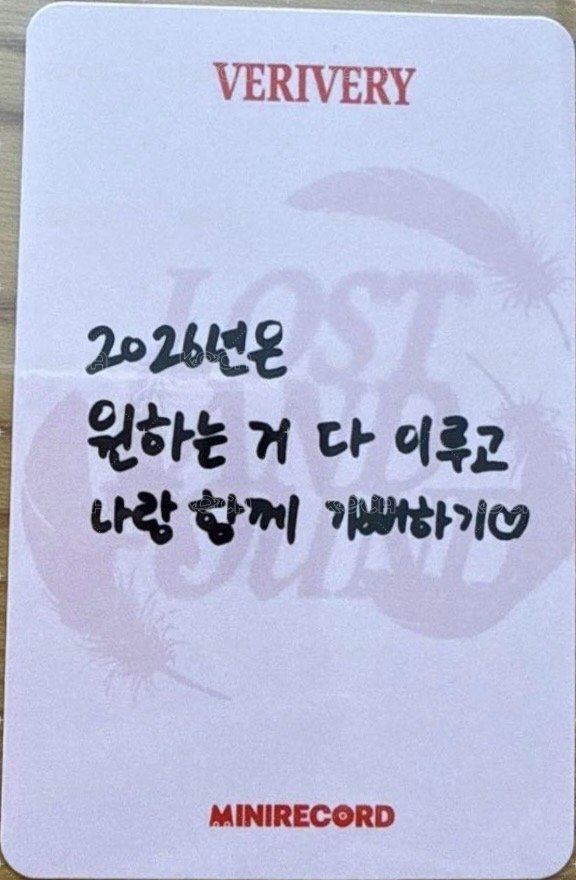 VERIVERY
LOST
AND
FOUND
2026년은
원하는 거 다 이루고
나랑 함께 기뻐하기♡
MINIRECORD